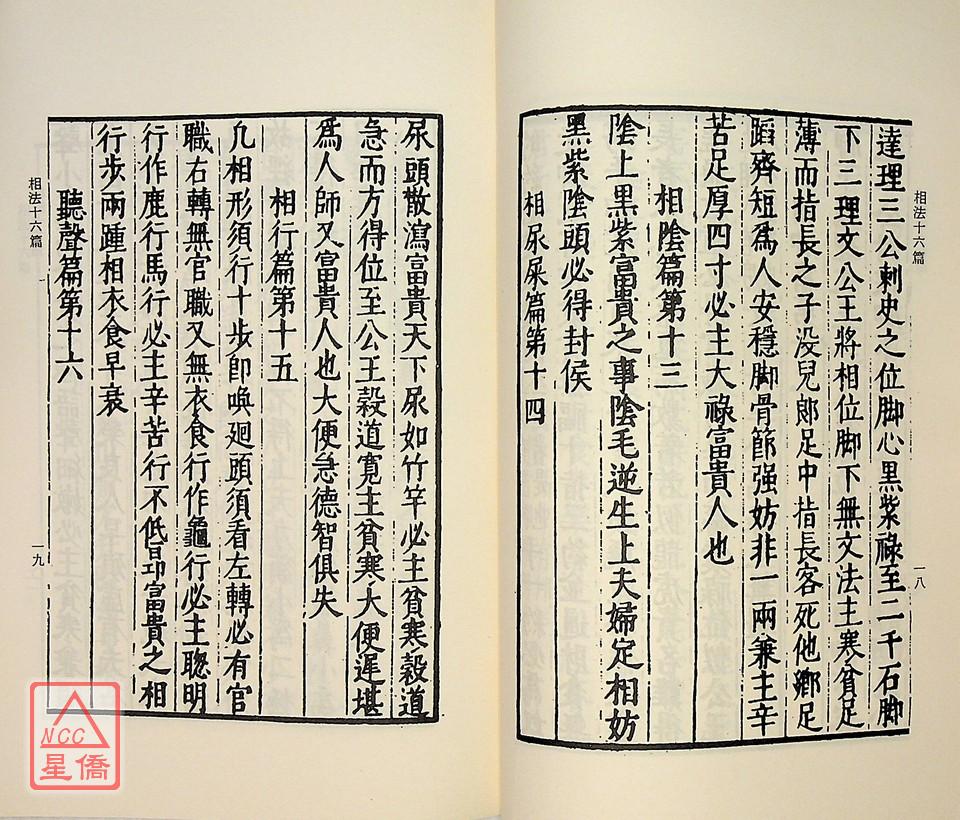 相法十六篇
一八
達理三公刺史之位脚心黑紫祿至二千石脚
下三理文公王將相位脚下無文法主寒貧足
薄而指長之子没兒郎足中指長客死他鄉足
蹈齊短爲人安穩脚骨節强妨非一兩兼主辛
苦足厚四寸必主大祿富貴人也
相陰篇第十三
陰上黑紫富貴之事陰毛逆生上夫婦定相妨
黑紫陰頭必得封侯
相尿屎篇第十四
尿頭散瀉富貴天下尿如竹竿必主貧寒穀道
急而方得位至公王穀道寛主貧寒大便遲堪
爲人師又富貴人也大便急德智俱失
相行篇第十五
凢相形須行十步即喚廻頭須看左轉必有官
職右轉無官職又無衣食行作龜行必主聦明
行作鹿行馬行必主辛苦行不低昂富貴之相
行步兩踵相衣食早衰
聽聲篇第十六
相法十六篇
一九
NCC
星僑